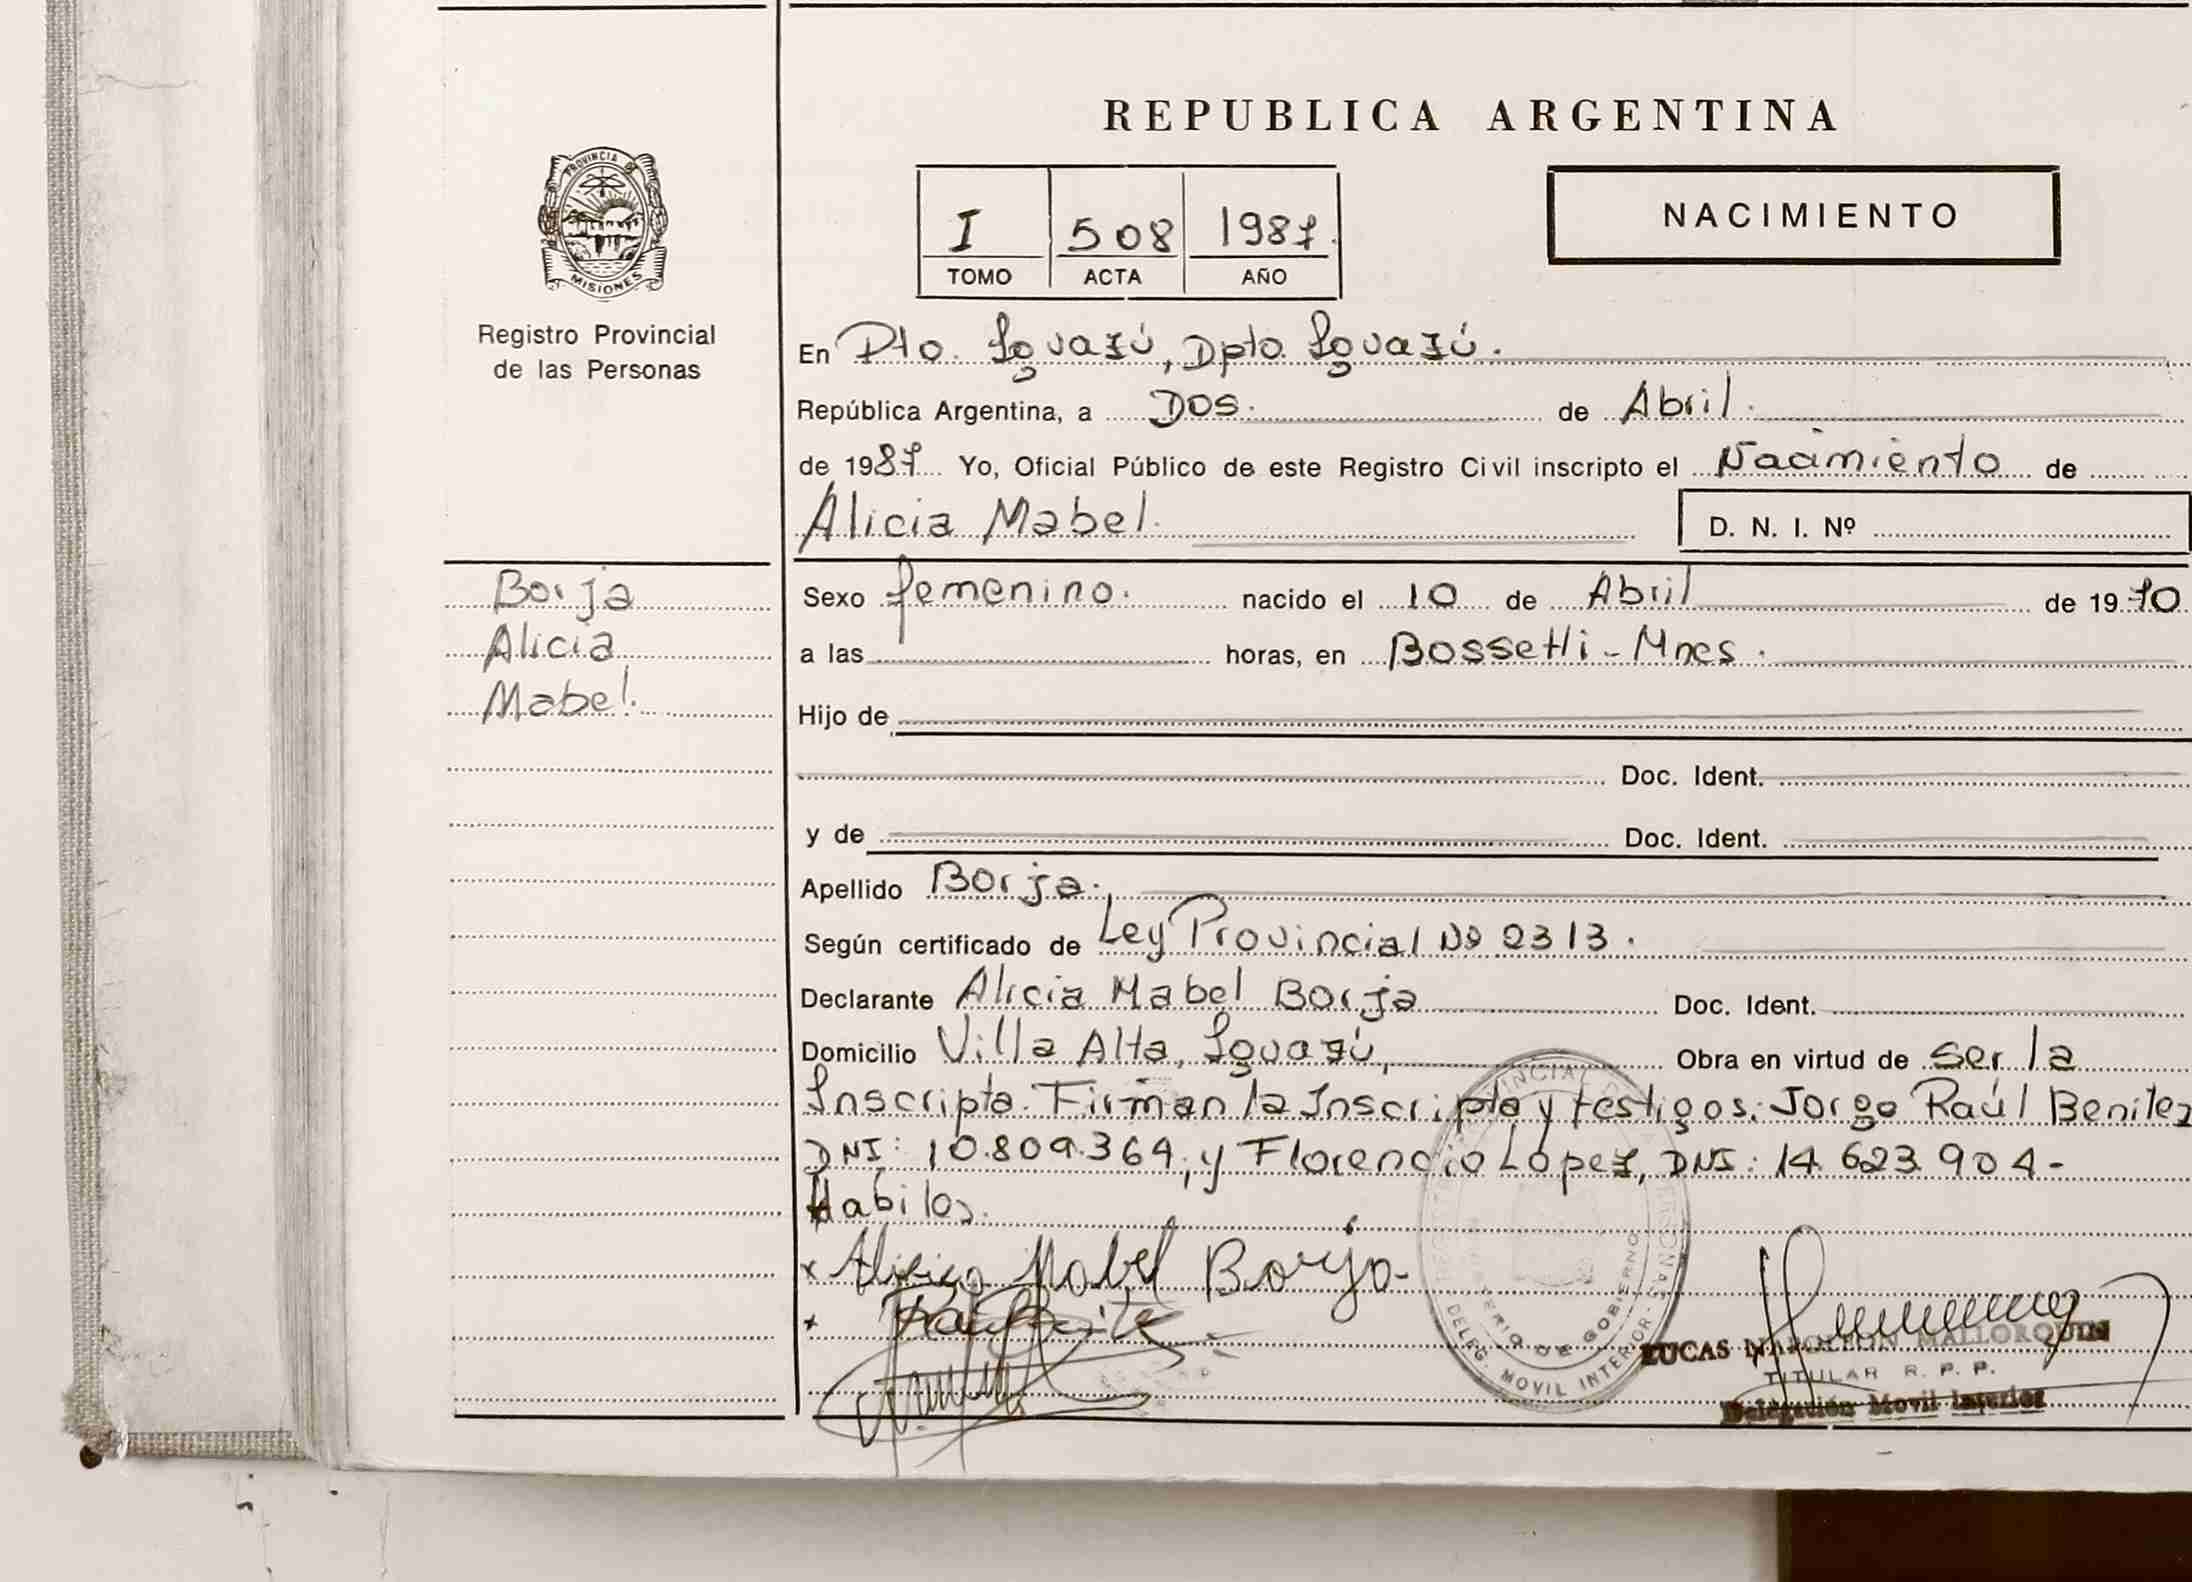 REPUBLICA ARGENTINA
PROVINCIA DE
MISIONES
Registro Provincial
de las Personas
I 508 1987
TOMO ACTA AÑO
NACIMIENTO
En Pto. Iguazú, Dpto. Iguazú.
República Argentina, a Dos. de Abril.
de 1987 Yo, Oficial Público de este Registro Civil inscripto el Nacimiento de
Alicia Mabel.
D. N. I. Nº
Borja
Alicia
Mabel.
Sexo femenino. nacido el 10 de Abril de 1970
a las horas, en Bossetti - Mnes.
Hijo de
Doc. Ident.
y de Doc. Ident.
Apellido Borja.
Según certificado de Ley Provincial Nº 2313.
Declarante Alicia Mabel Borja Doc. Ident.
Domicilio Villa Alta, Iguazú, Obra en virtud de ser la
Inscripta. Firman la Inscripta y testigos: Jorge Raúl Benitez
DNI: 10.809.364, y Florencio Lopez, DNI: 14.623.904-
Habiles.
x Alicia Mabel Borja-
DELEG. MOVIL INTERIOR
DE GOBIERNO
LUCAS NAPOLEON MALLORQUIN
TITULAR R. P. P.
Delegación Movil Interior